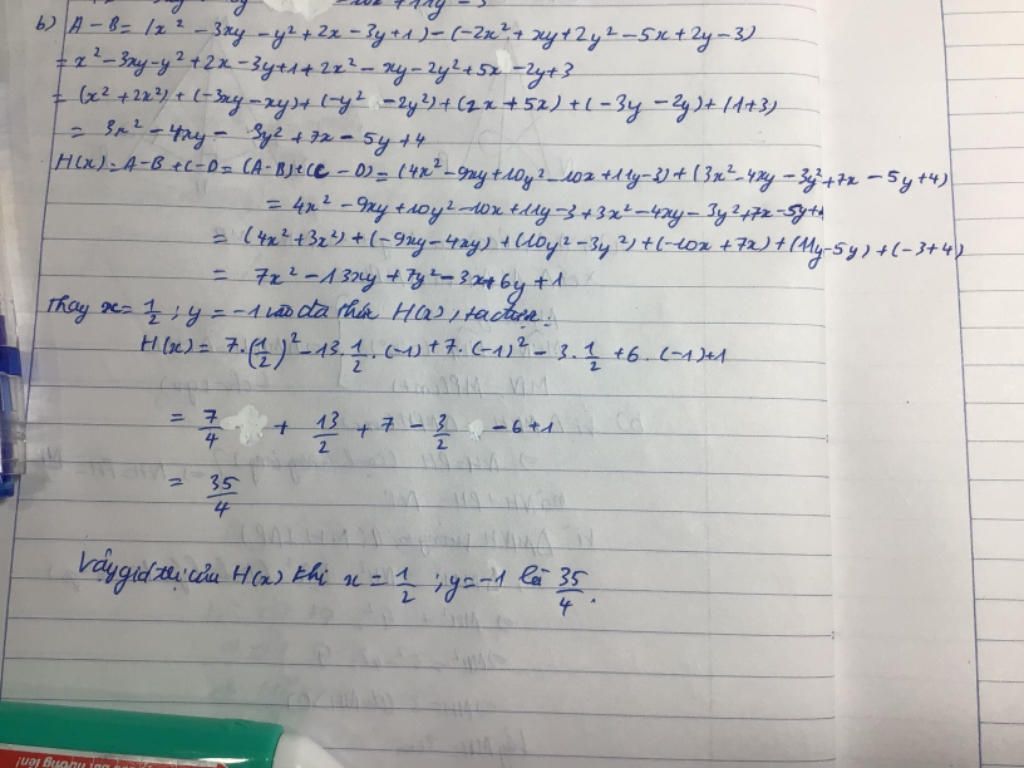 b) A-B= (x² - 3xy - y² + 2x - 3y + 1) - (-2x² + xy + 2y² - 5x + 2y - 3)
= x² - 3xy - y² + 2x - 3y + 1 + 2x² - xy - 2y² + 5x - 2y + 3
= (x² + 2x²) + (-3xy - xy) + (-y² - 2y²) + (2x + 5x) + (-3y - 2y) + (1+3)
= 3x² - 4xy - 3y² + 7x - 5y + 4
H(x) = A-B + C-D = (A-B)+(C - D) = (4x² - 9xy + 10y² - 10x + 11y - 3) + (3x² - 4xy - 3y² + 7x - 5y + 4)
= 4x² - 9xy + 10y² - 10x + 11y - 3 + 3x² - 4xy - 3y² + 7x - 5y +
= (4x² + 3x²) + (-9xy - 4xy) + (10y² - 3y²) + (-10x + 7x) + (11y - 5y) + (-3+4)
= 7x² - 13xy + 7y² - 3x + 6y + 1
Thay x = 1/2 ; y = -1 vào đa thức H(x), ta được:
H(x) = 7.(1/2)² - 13. 1/2 . (-1) + 7. (-1)² - 3. 1/2 + 6. (-1) + 1
= 7/4 + 13/2 + 7 - 3/2 - 6 + 1
= 35/4
Vậy giá trị của H(x) khi x = 1/2 ; y = -1 là 35/4.